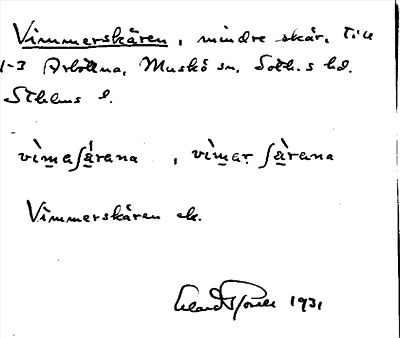 Vimmerskären, mindre skär, till
1-3 Arbottna, Muskö sn, Soth.s hd.
Sthlms l.
vìmaʃä́rana , vìmar ʃä̀rana
Vimmerskären ek.
1931